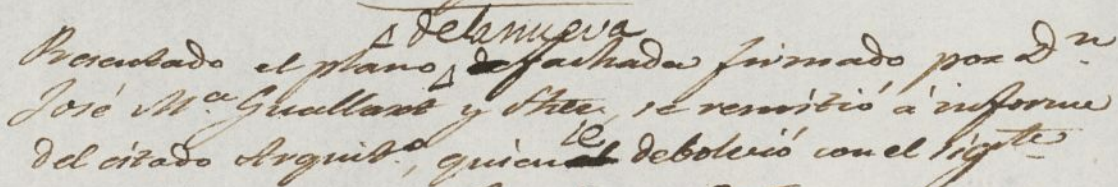 de la nueva
Presentado el plano de fachada firmado por Dn.
José Ma. Guallart y Shee, se remitió á informe
del citado Arquito., quien le debolvió con el sigte.